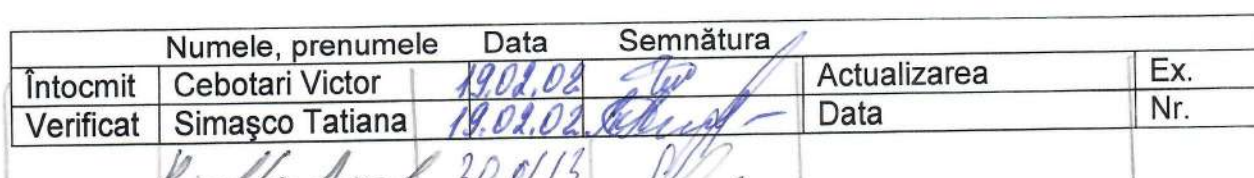 Numele, prenumele Data Semnătura
Întocmit Cebotari Victor 19.02.02 Actualizarea Ex.
Verificat Simașco Tatiana 19.02.02 Data Nr.